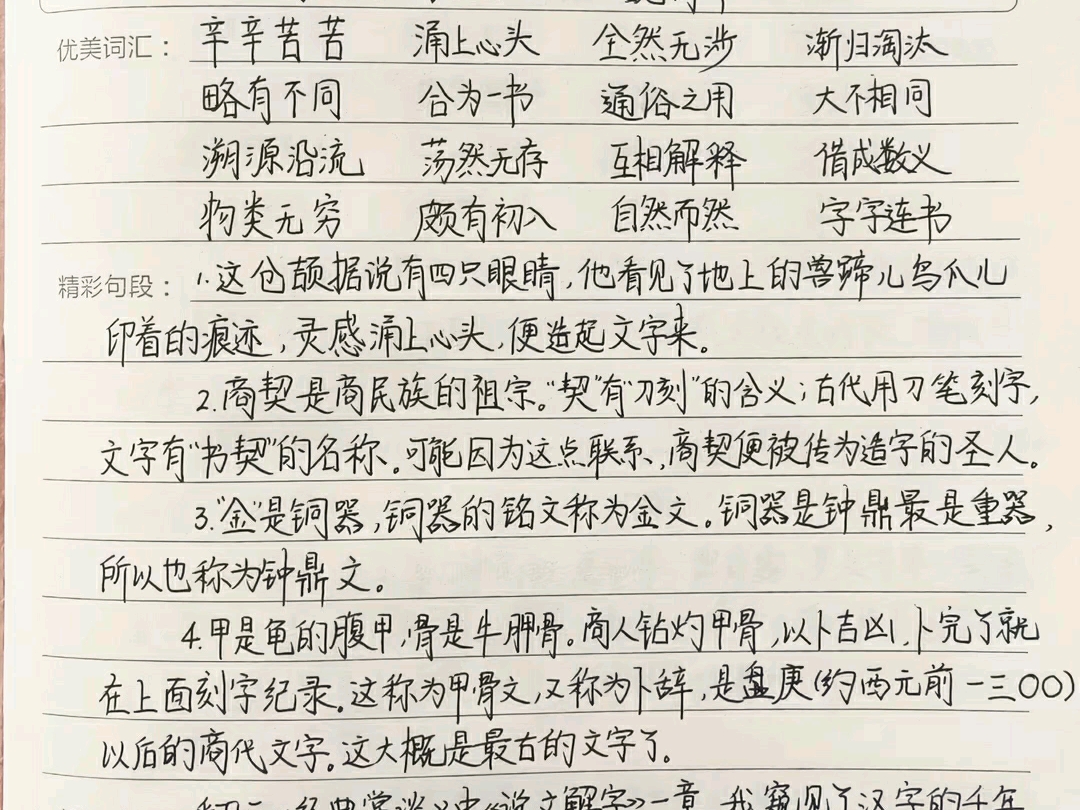 优美词汇： 辛辛苦苦 涌上心头 全然无涉 渐归淘汰
略有不同 合为一书 通俗之用 大不相同
溯源沿流 荡然无存 互相解释 借成数义
物类无穷 颇有初入 自然而然 字字连书
精彩句段： 1.这仓颉据说有四只眼睛，他看见了地上的兽蹄儿鸟爪儿
印着的痕迹，灵感涌上心头，便造起文字来。
2.商契是商民族的祖宗。“契”有“刀刻”的含义；古代用刀笔刻字，
文字有“书契”的名称。可能因为这点联系，商契便被传为造字的圣人。
3.“金”是铜器，铜器的铭文称为金文。铜器是钟鼎最是重器，
所以也称为钟鼎文。
4.甲是龟的腹甲，骨是牛胛骨。商人钻灼甲骨，以卜吉凶，卜完了就
在上面刻字纪录。这称为甲骨文，又称为卜辞，是盘庚（约西元前一三〇〇）
以后的商代文字。这大概是最古的文字了。